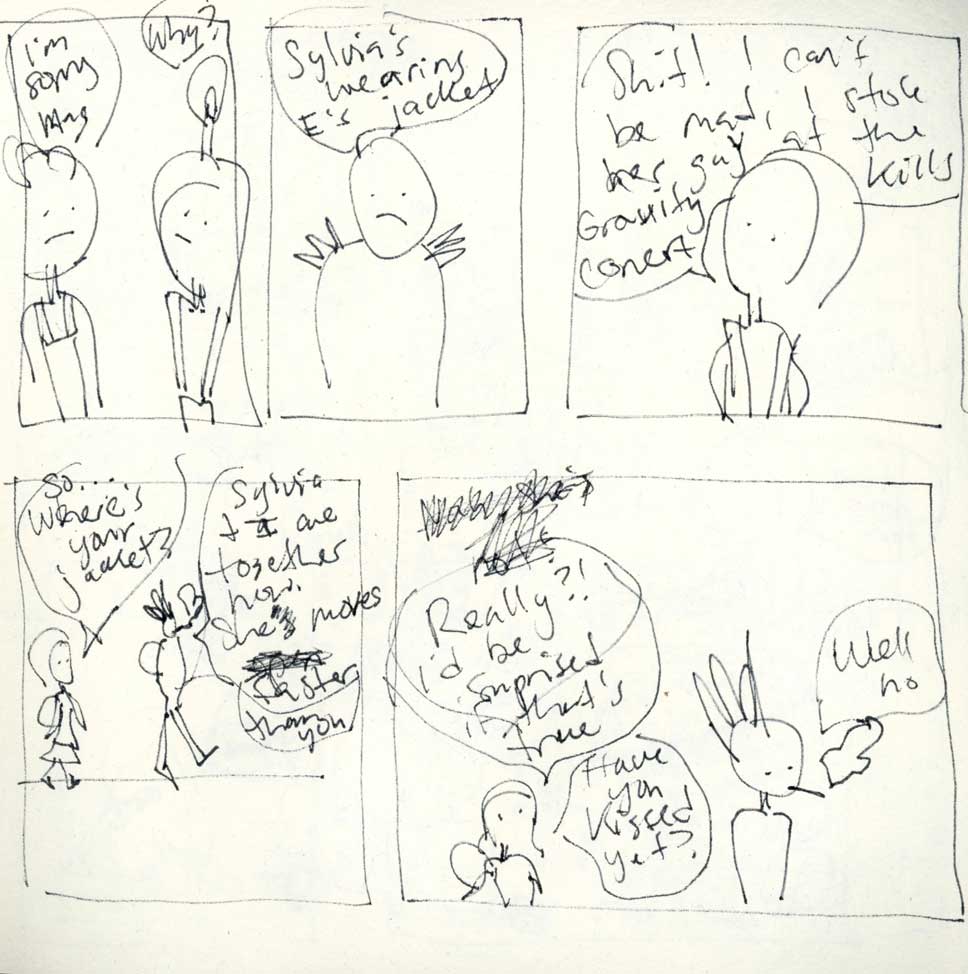 I'm
sorry
Mag
Why?
Sylvia's
wearing
E's jacket
Shit! I can't
be mad, I stole
her guy at the
Gravity Kills
concert
So....
Where's
your
jacket?
Sylvia
+ I are
together
now.
She moves
faster
than you
Really?!
I'd be
surprised
if that's
true
Have
you
kissed
yet?
Well
no